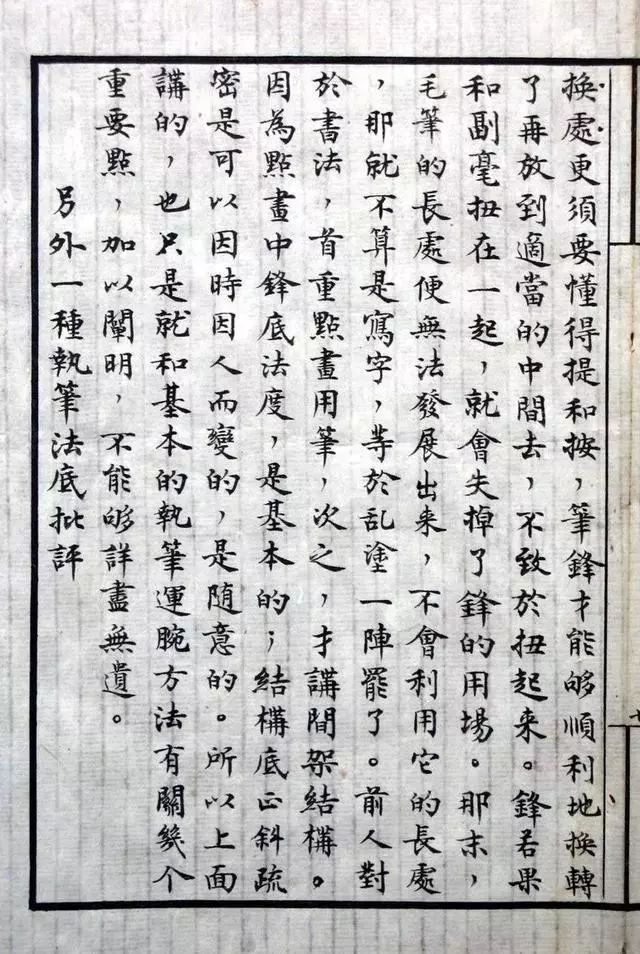 換處更須要懂得提和按，筆鋒才能够順利地換轉
了再放到適當的中間去，不致於扭起來。鋒若果
和副毫扭在一起，就會失掉了鋒的用場。那末，
毛筆的長處便無法發展出来，不會利用它的長處
，那就不算是寫字，等於乱塗一陣罷了。前人對
於書法，首重點畫用筆，次之，才講間架結構。
因為點畫中鋒底法度，是基本的；結構底正斜疏
密是可以因時因人而變的，是随意的。所以上面
講的，也只是就和基本的執筆運腕方法有關幾个
重要點，加以闡明，不能够詳盡無遺。
另外一種執筆法底批評